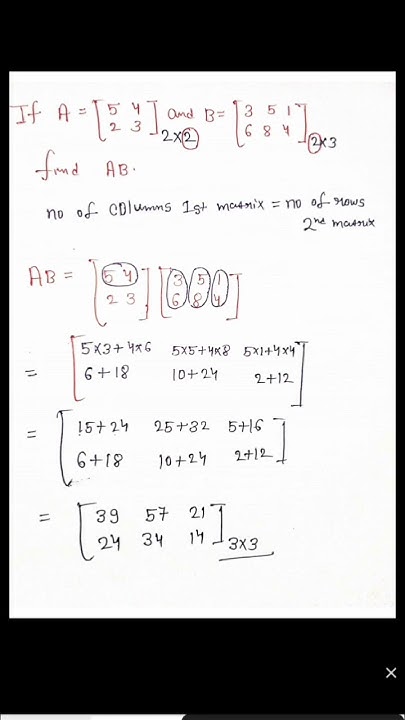 If A = [5 4 and B = [3 5 1
2 3] 2×2 6 8 4] 2×3
find AB.
no of columns 1st matrix = no of rows
2nd matrix
AB = [5 4 [3 5 1
2 3] 6 8 4]
[5×3+4×6 5×5+4×8 5×1+4×4
= 6+18 10+24 2+12]
= [15+24 25+32 5+16
6+18 10+24 2+12]
= [39 57 21
24 34 14] 3×3
×